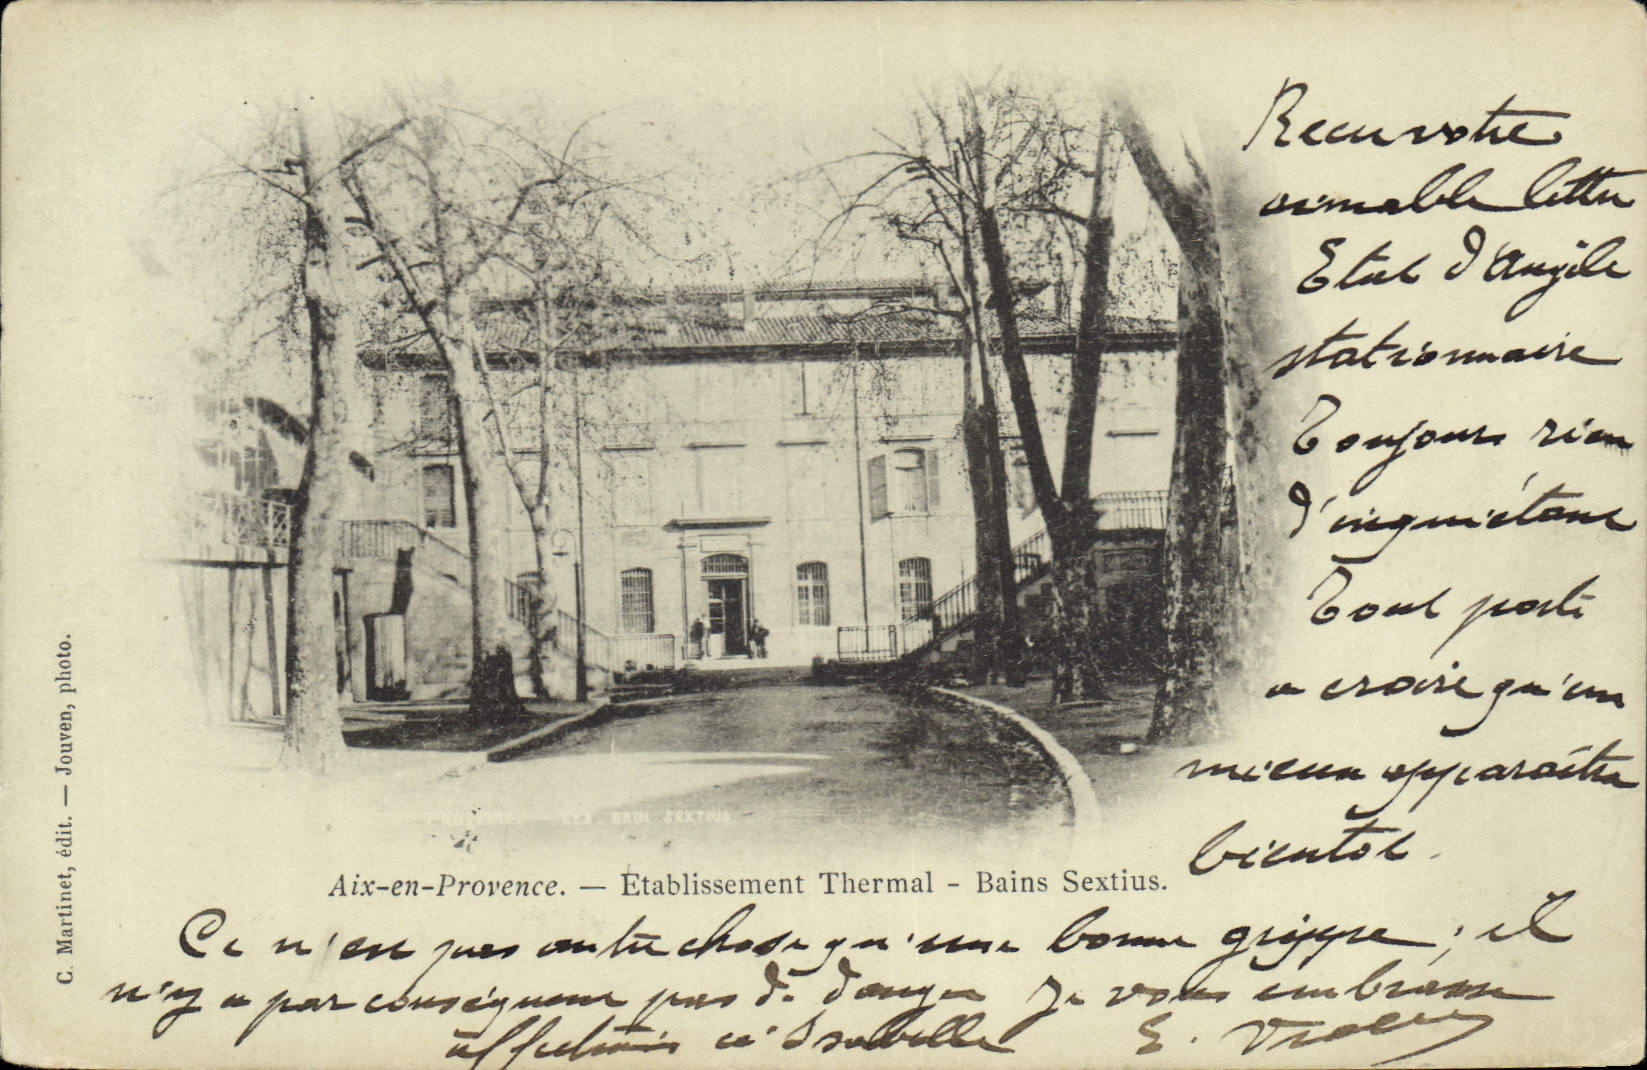 Recu votre
aimable lettre
Etat d'Angèle
stationnaire
Toujours rien
d'inquiétant
Tout porte
a croire qu'un
mieux apparaîtra
bientot.
C. Martinet, édit. — Jouven, photo.
LES BAIN SEXTIUS
Aix-en-Provence. — Etablissement Thermal - Bains Sextius.
Ce n'est pas autre chose qu'une bonne grippe ; il
n'y a par conséquent pas de danger Je vous embrasse
Isabelle E.